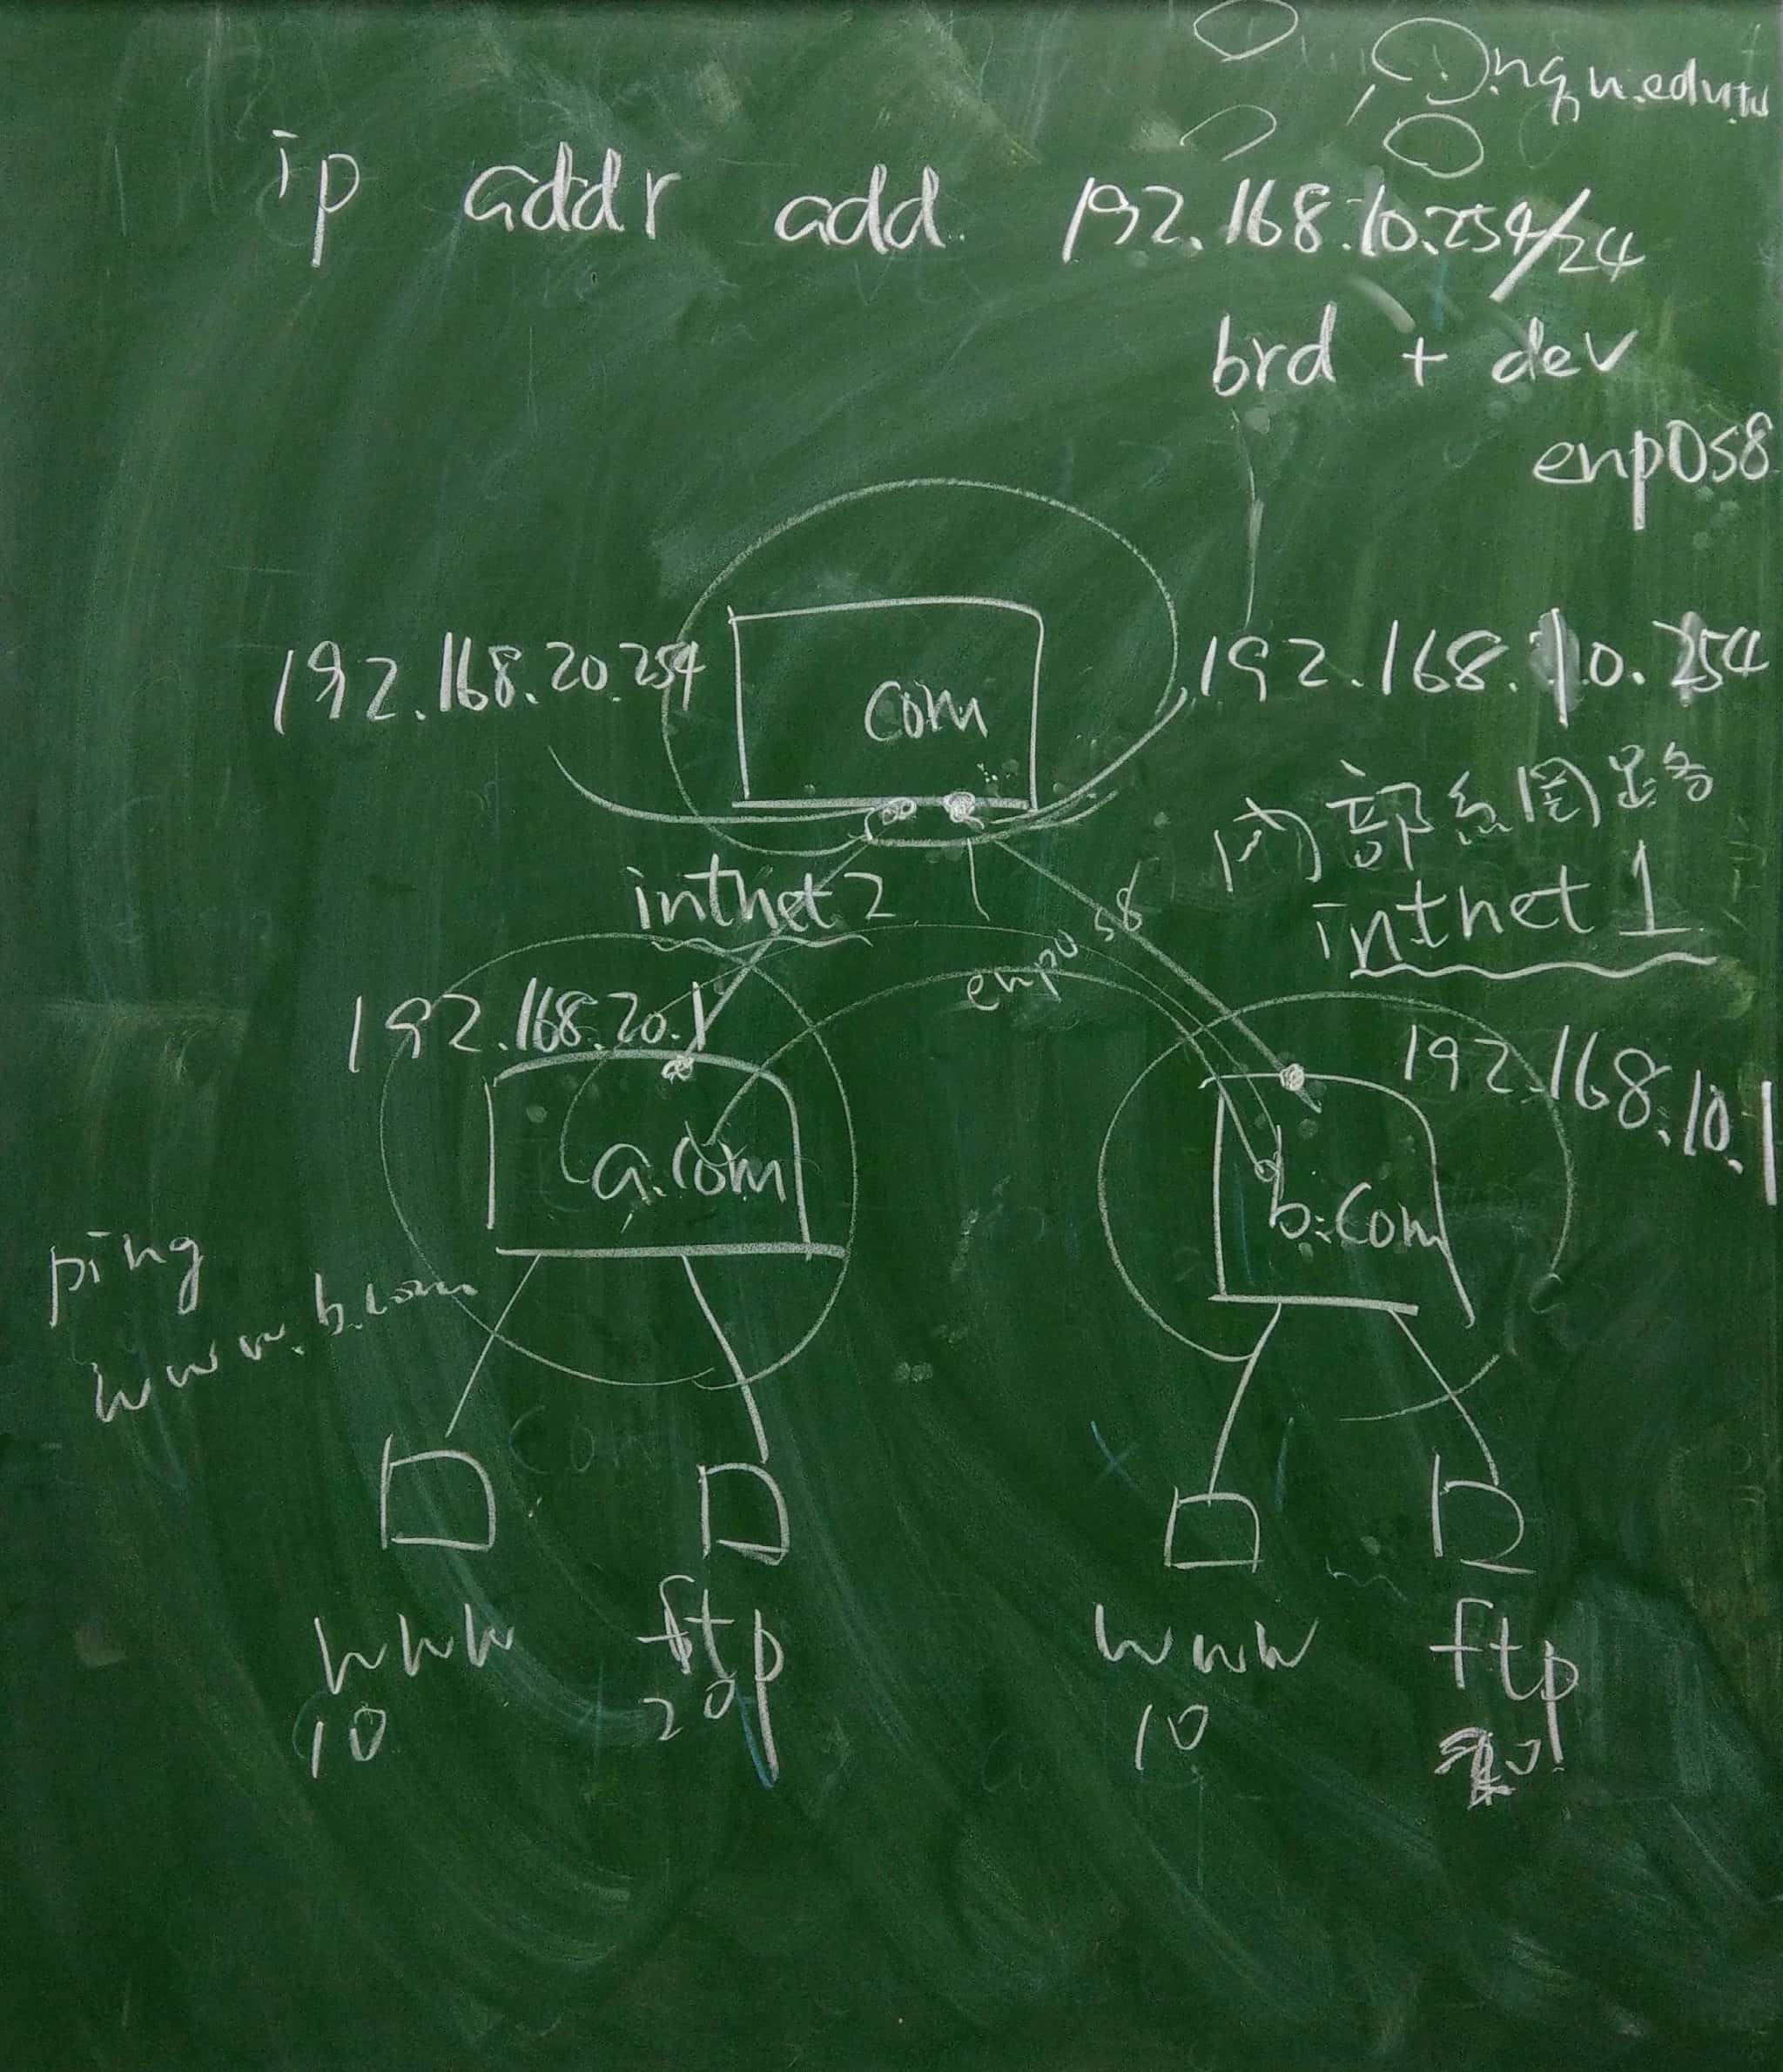 .nqu.edu.tw
ip addr add 192.168.10.254/24
brd + dev
enp0s8
192.168.20.254
com
192.168.10.254
內部網路
intnet 2
intnet 1
enp0s8
192.168.20.1
192.168.10.1
a.com
b.com
ping
www.b.com
www
ftp
www
ftp
10
20
10